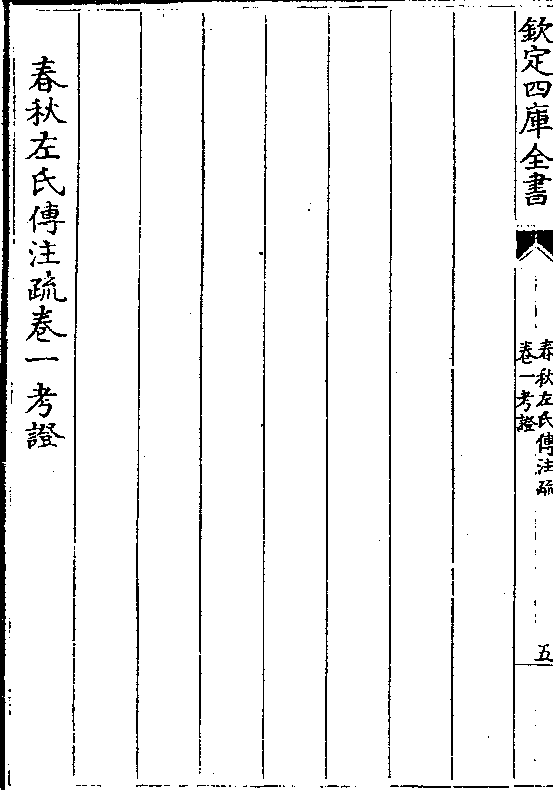 欽定四庫全書
春秋左氏傳注疏
卷一考證
五
春秋左氏傳注疏卷一考證